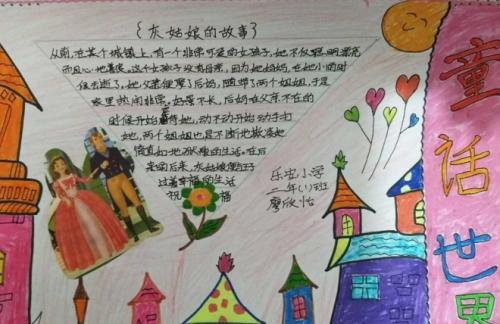 {灰姑娘的故事}
从前,在某个城镇上,有一个非常可爱的女孩子,她不仅聪明漂亮
而且心地善良,这个女孩子没有母亲,因为她妈妈,在她小的时
候去逝了,她父亲便娶了后妈,随带了两个姐姐,于是
家里热闹非常。好景不长,后妈在父亲不在的
时候开始虐待她,动不动开始动手打
她,两个姐姐也是不断地欺凌她
简直如地狱般的生活。在后
来的后来,灰姑娘便与王子
过着幸福的生活
祝 福
乐安小学
二年(1)班
廖欣怡
童话世界